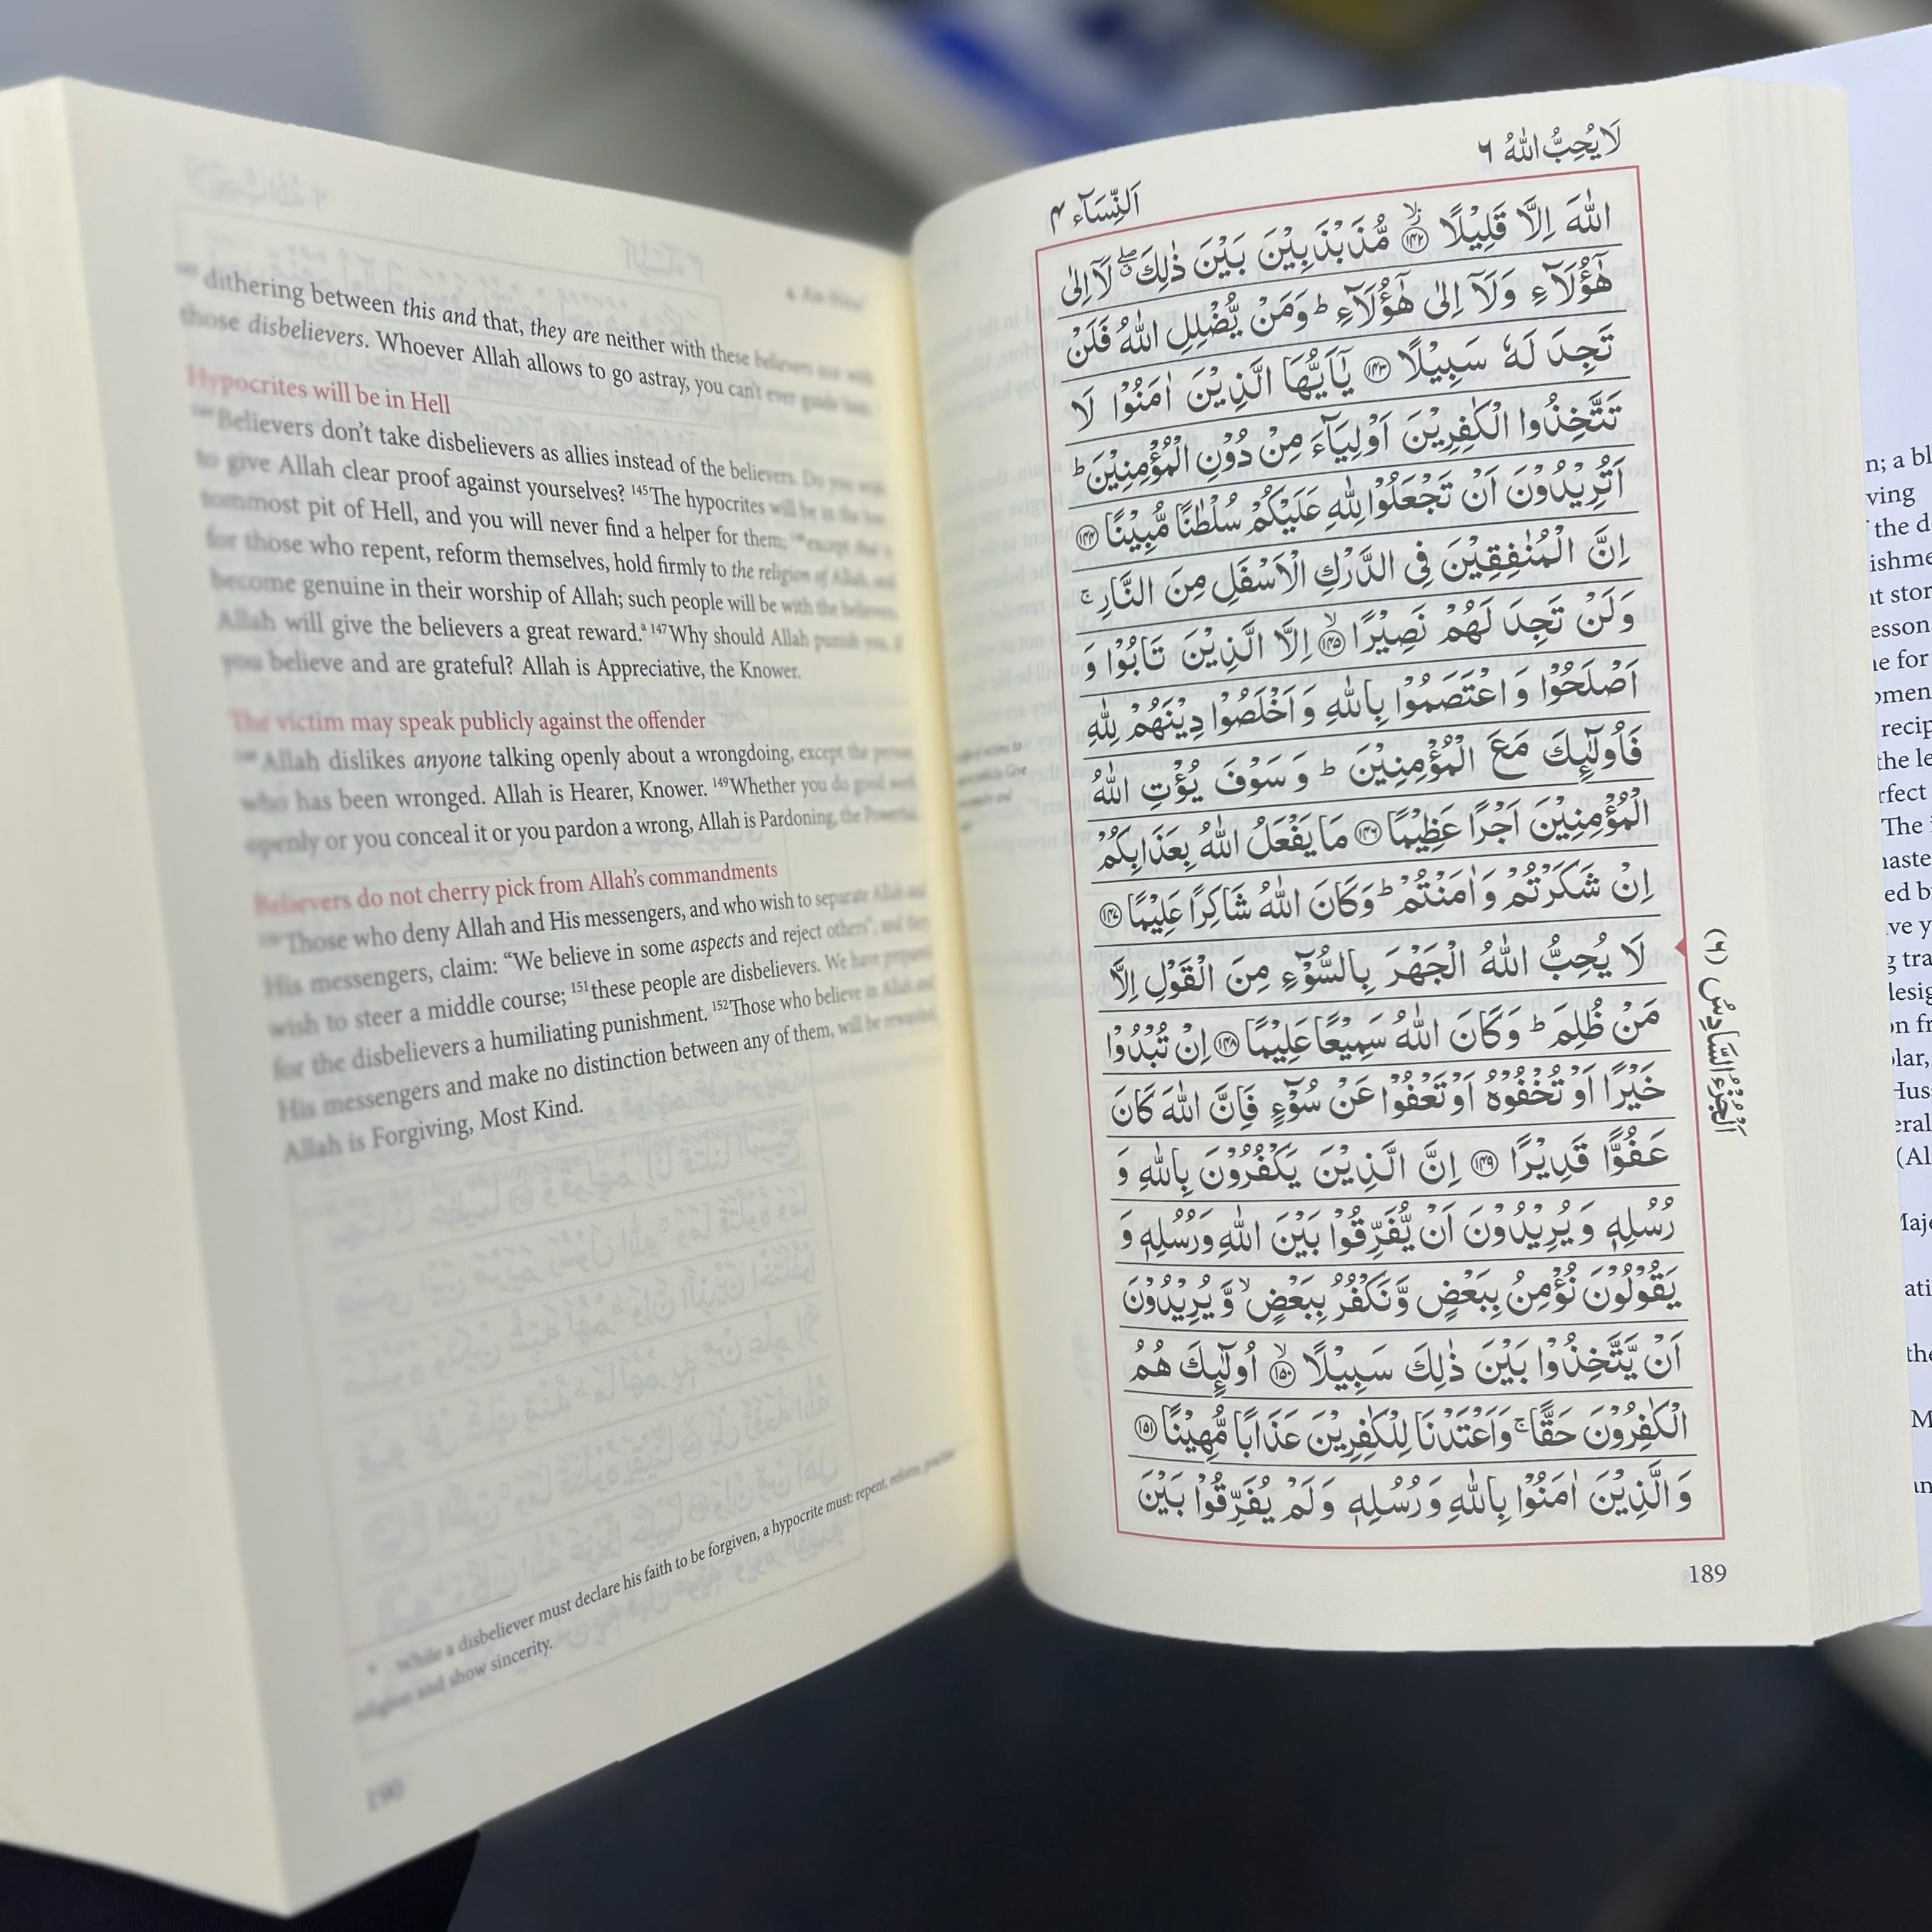 لَا يُحِبُّ اللّٰهُ ٦
اَلنِّسَآء ٤
اللّٰهَ اِلَّا قَلِيْلًا ۙ﴿۱۴۲﴾ مُّذَبْذَبِيْنَ بَيْنَ ذٰلِكَ ۖ لَآ اِلٰى
هٰٓؤُلَآءِ وَلَآ اِلٰى هٰٓؤُلَآءِ ؕ وَمَنْ يُّضْلِلِ اللّٰهُ فَلَنْ
تَجِدَ لَهٗ سَبِيْلًا ﴿۱۴۳﴾ يٰۤاَيُّهَا الَّذِيْنَ اٰمَنُوْا لَا
تَتَّخِذُوا الْكٰفِرِيْنَ اَوْلِيَآءَ مِنْ دُوْنِ الْمُؤْمِنِيْنَ ؕ
اَتُرِيْدُوْنَ اَنْ تَجْعَلُوْا لِلّٰهِ عَلَيْكُمْ سُلْطٰنًا مُّبِيْنًا ﴿۱۴۴﴾
اِنَّ الْمُنٰفِقِيْنَ فِى الدَّرْكِ الْاَسْفَلِ مِنَ النَّارِ ۚ
وَلَنْ تَجِدَ لَهُمْ نَصِيْرًا ۙ﴿۱۴۵﴾ اِلَّا الَّذِيْنَ تَابُوْا وَ
اَصْلَحُوْا وَاعْتَصَمُوْا بِاللّٰهِ وَاَخْلَصُوْا دِيْنَهُمْ لِلّٰهِ
فَاُولٰٓئِكَ مَعَ الْمُؤْمِنِيْنَ ؕ وَسَوْفَ يُؤْتِ اللّٰهُ
الْمُؤْمِنِيْنَ اَجْرًا عَظِيْمًا ﴿۱۴۶﴾ مَا يَفْعَلُ اللّٰهُ بِعَذَابِكُمْ
اِنْ شَكَرْتُمْ وَاٰمَنْتُمْ ؕ وَكَانَ اللّٰهُ شَاكِرًا عَلِيْمًا ﴿۱۴۷﴾
لَا يُحِبُّ اللّٰهُ الْجَهْرَ بِالسُّوْٓءِ مِنَ الْقَوْلِ اِلَّا
مَنْ ظُلِمَ ؕ وَكَانَ اللّٰهُ سَمِيْعًا عَلِيْمًا ﴿۱۴۸﴾ اِنْ تُبْدُوْا
خَيْرًا اَوْ تُخْفُوْهُ اَوْ تَعْفُوْا عَنْ سُوْٓءٍ فَاِنَّ اللّٰهَ كَانَ
عَفُوًّا قَدِيْرًا ﴿۱۴۹﴾ اِنَّ الَّذِيْنَ يَكْفُرُوْنَ بِاللّٰهِ وَ
رُسُلِهٖ وَيُرِيْدُوْنَ اَنْ يُّفَرِّقُوْا بَيْنَ اللّٰهِ وَرُسُلِهٖ وَ
يَقُوْلُوْنَ نُؤْمِنُ بِبَعْضٍ وَّنَكْفُرُ بِبَعْضٍ ۙ وَّيُرِيْدُوْنَ
اَنْ يَّتَّخِذُوْا بَيْنَ ذٰلِكَ سَبِيْلًا ۙ﴿۱۵۰﴾ اُولٰٓئِكَ هُمُ
الْكٰفِرُوْنَ حَقًّا ۚ وَاَعْتَدْنَا لِلْكٰفِرِيْنَ عَذَابًا مُّهِيْنًا ﴿۱۵۱﴾
وَالَّذِيْنَ اٰمَنُوْا بِاللّٰهِ وَرُسُلِهٖ وَلَمْ يُفَرِّقُوْا بَيْنَ
اَلْجُزْءُ السَّادِسُ (٦)
189
dithering between this and that, they are neither with these believers nor with
those disbelievers. Whoever Allah allows to go astray, you can't ever guide him.
Hypocrites will be in Hell
Believers don't take disbelievers as allies instead of the believers. Do you want
to give Allah clear proof against yourselves? 145The hypocrites will be in the bot-
tommost pit of Hell, and you will never find a helper for them; except
for those who repent, reform themselves, hold firmly to the religion of Allah, and
become genuine in their worship of Allah; such people will be with the believers.
Allah will give the believers a great reward.a 147Why should Allah punish you, if
you believe and are grateful? Allah is Appreciative, the Knower.
The victim may speak publicly against the offender
Allah dislikes anyone talking openly about a wrongdoing, except the person
who has been wronged. Allah is Hearer, Knower. 149Whether you do good work
openly or you conceal it or you pardon a wrong, Allah is Pardoning, the Powerful.
Believers do not cherry pick from Allah's commandments
Those who deny Allah and His messengers, and who wish to separate Allah and
His messengers, claim: “We believe in some aspects and reject others”; and they
wish to steer a middle course; 151these people are disbelievers. We have prepared
for the disbelievers a humiliating punishment. 152Those who believe in Allah and
His messengers and make no distinction between any of them, will be rewarded.
Allah is Forgiving, Most Kind.
While a disbeliever must declare his faith to be forgiven, a hypocrite must: repent, reform, practise
religion and show sincerity.
190